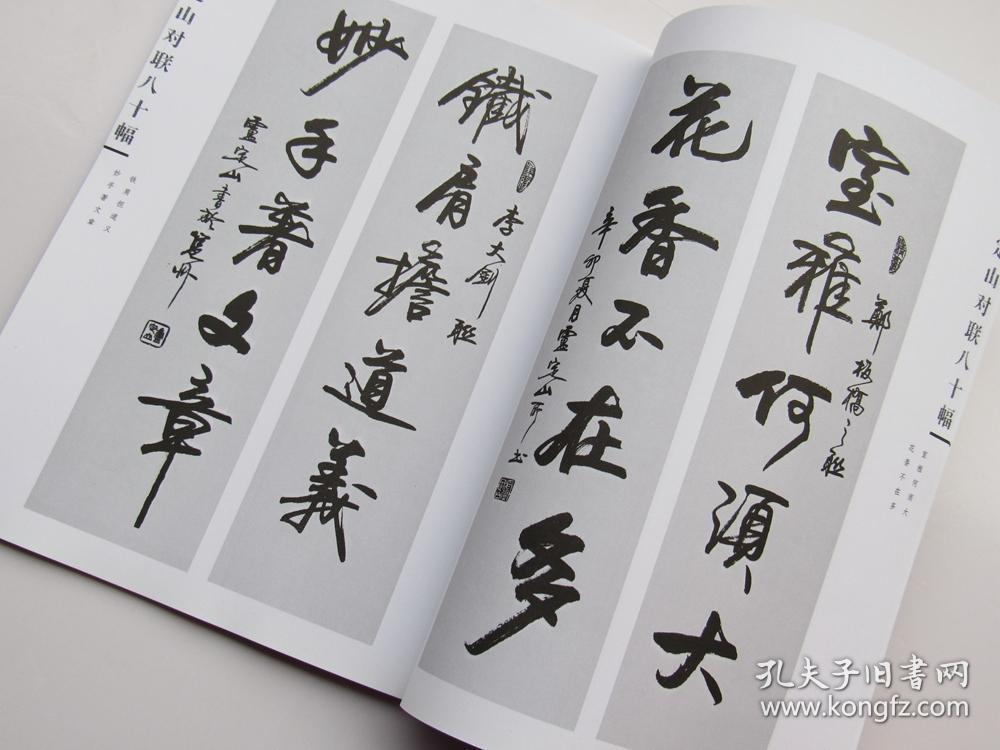 定山对联八十幅
室雅何须大
花香不在多
室雅何須大
鄭板橋之联
花香不在多
辛卯夏月靈定山所书
鐵肩擔道義
李大釗联
妙手著文章
靈定山書於
定山对联八十幅
铁肩担道义
妙手著文章
孔夫子旧書网
www.kongfz.com